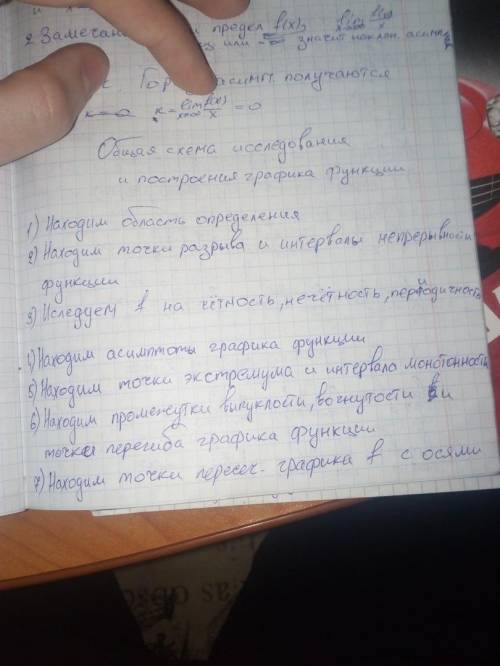 2. предел f(x), lim f(x)/x
x→∞
или -∞ значит наклон. асимп
Гор асимп. получаются
k=0 k = lim f(x)/x = 0
x→∞
Общая схема исследования
и построения графика функции
1) Находим область определения
2) Находим точки разрыва и интервалы непрерывности
функции
3) Иследуем f на чётность, нечётность, периодичность
4) Находим асимптоты графика функции
5) Находим точки экстремума и интервала монотонности
6) Находим промежутки выпуклости, вогнутости и
точки перегиба графика функции
7) Находим точки пересеч. графика f с осями